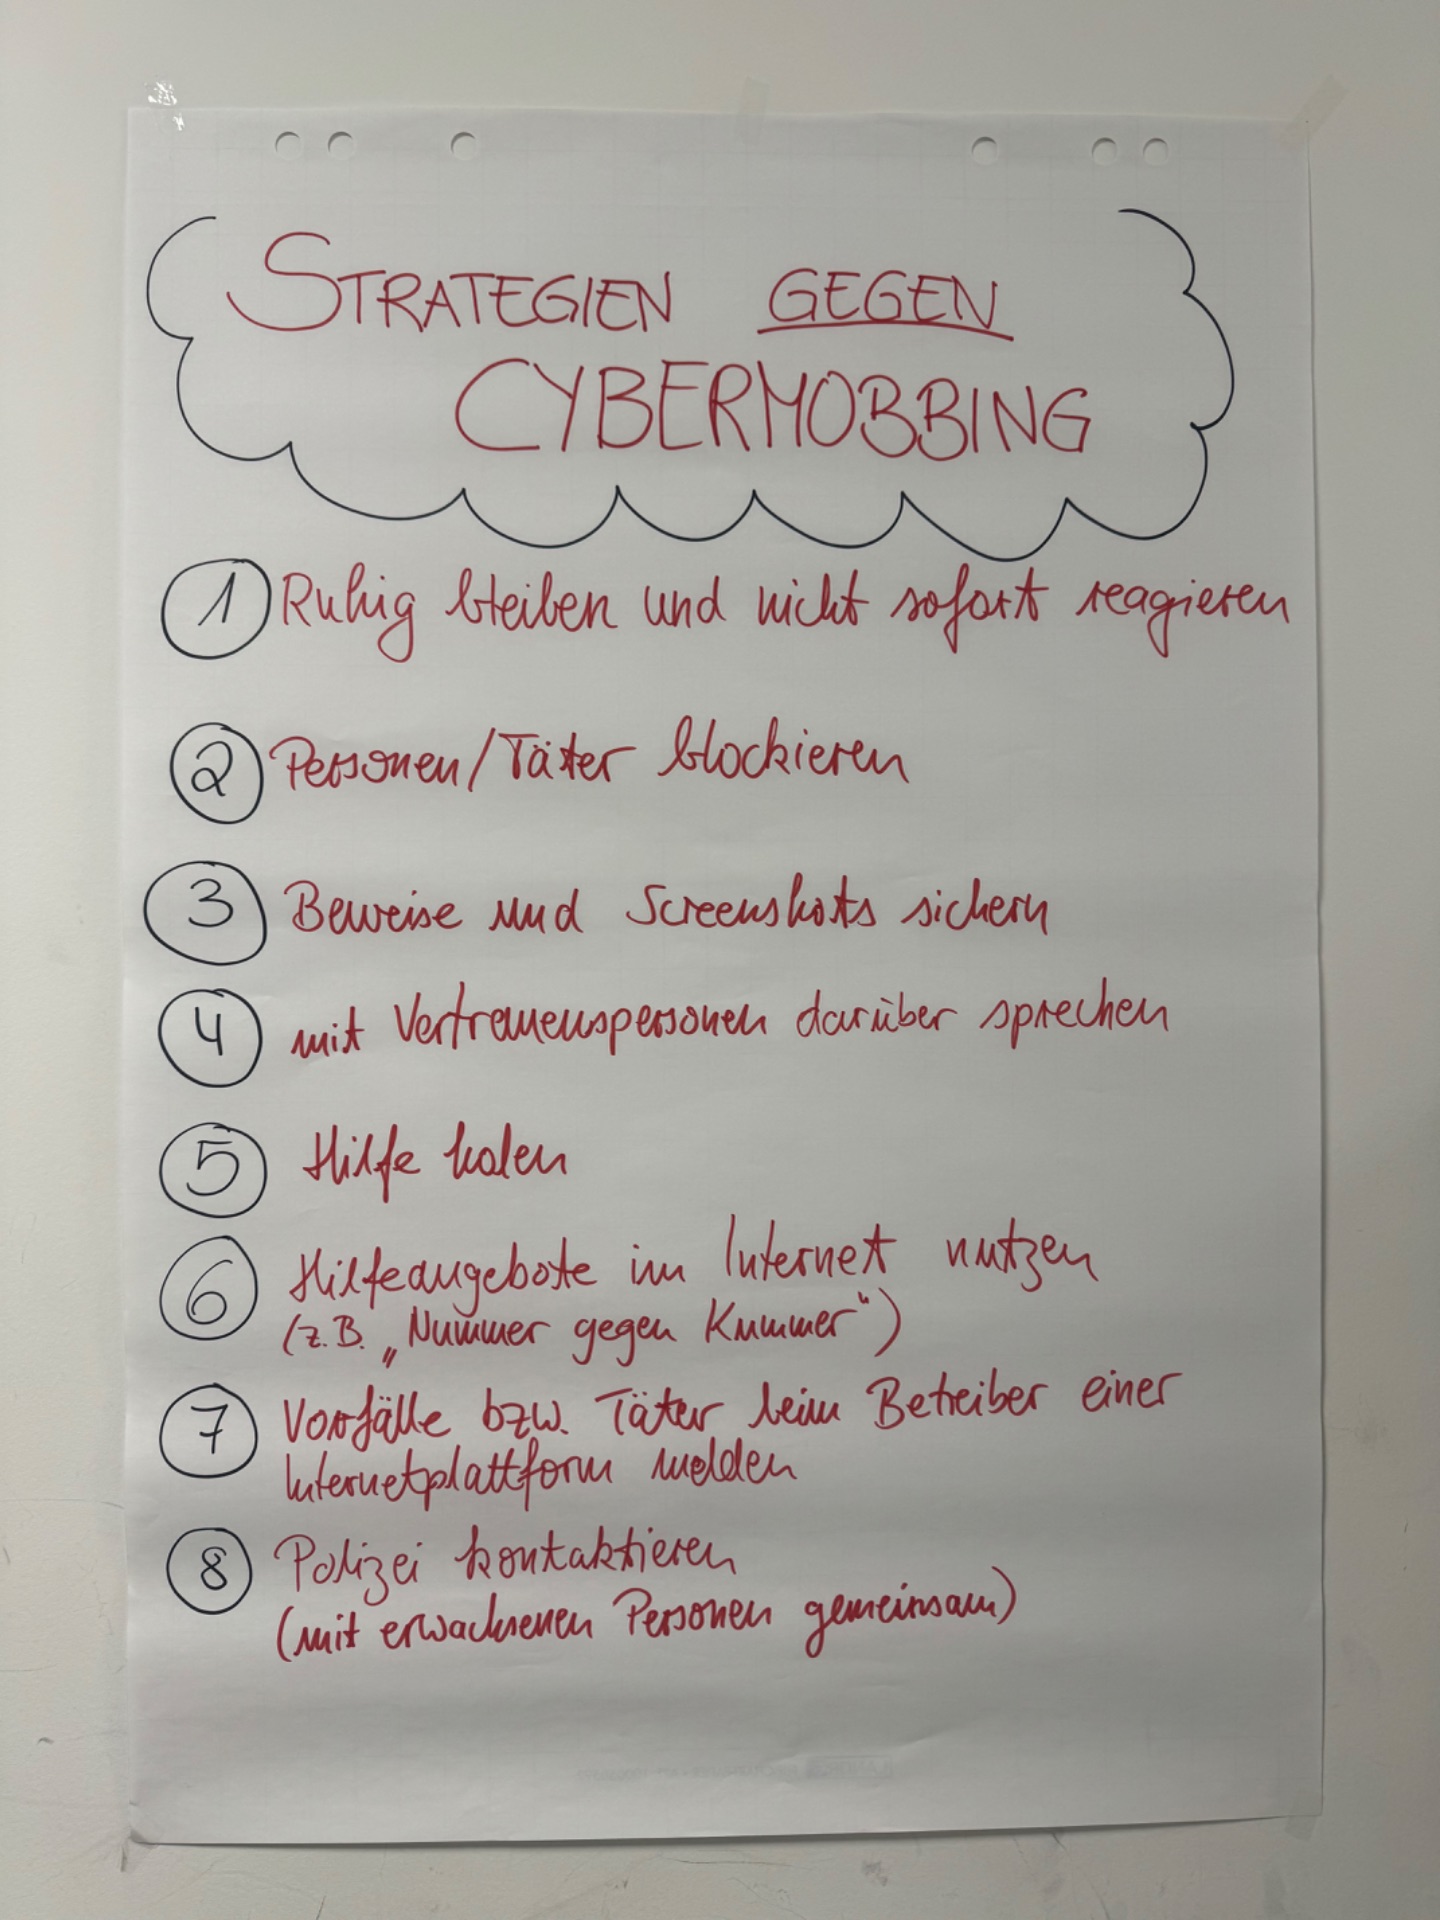 STRATEGIEN GEGEN
CYBERMOBBING
1 Ruhig bleiben und nicht sofort reagieren
2 Personen/Täter blockieren
3 Beweise und Screenshots sichern
4 mit Vertrauenspersonen darüber sprechen
5 Hilfe holen
6 Hilfeangebote im Internet nutzen
(z.B. „Nummer gegen Kummer“)
7 Vorfälle bzw. Täter beim Betreiber einer
Internetplattform melden
8 Polizei kontaktieren
(mit erwachsenen Personen gemeinsam)